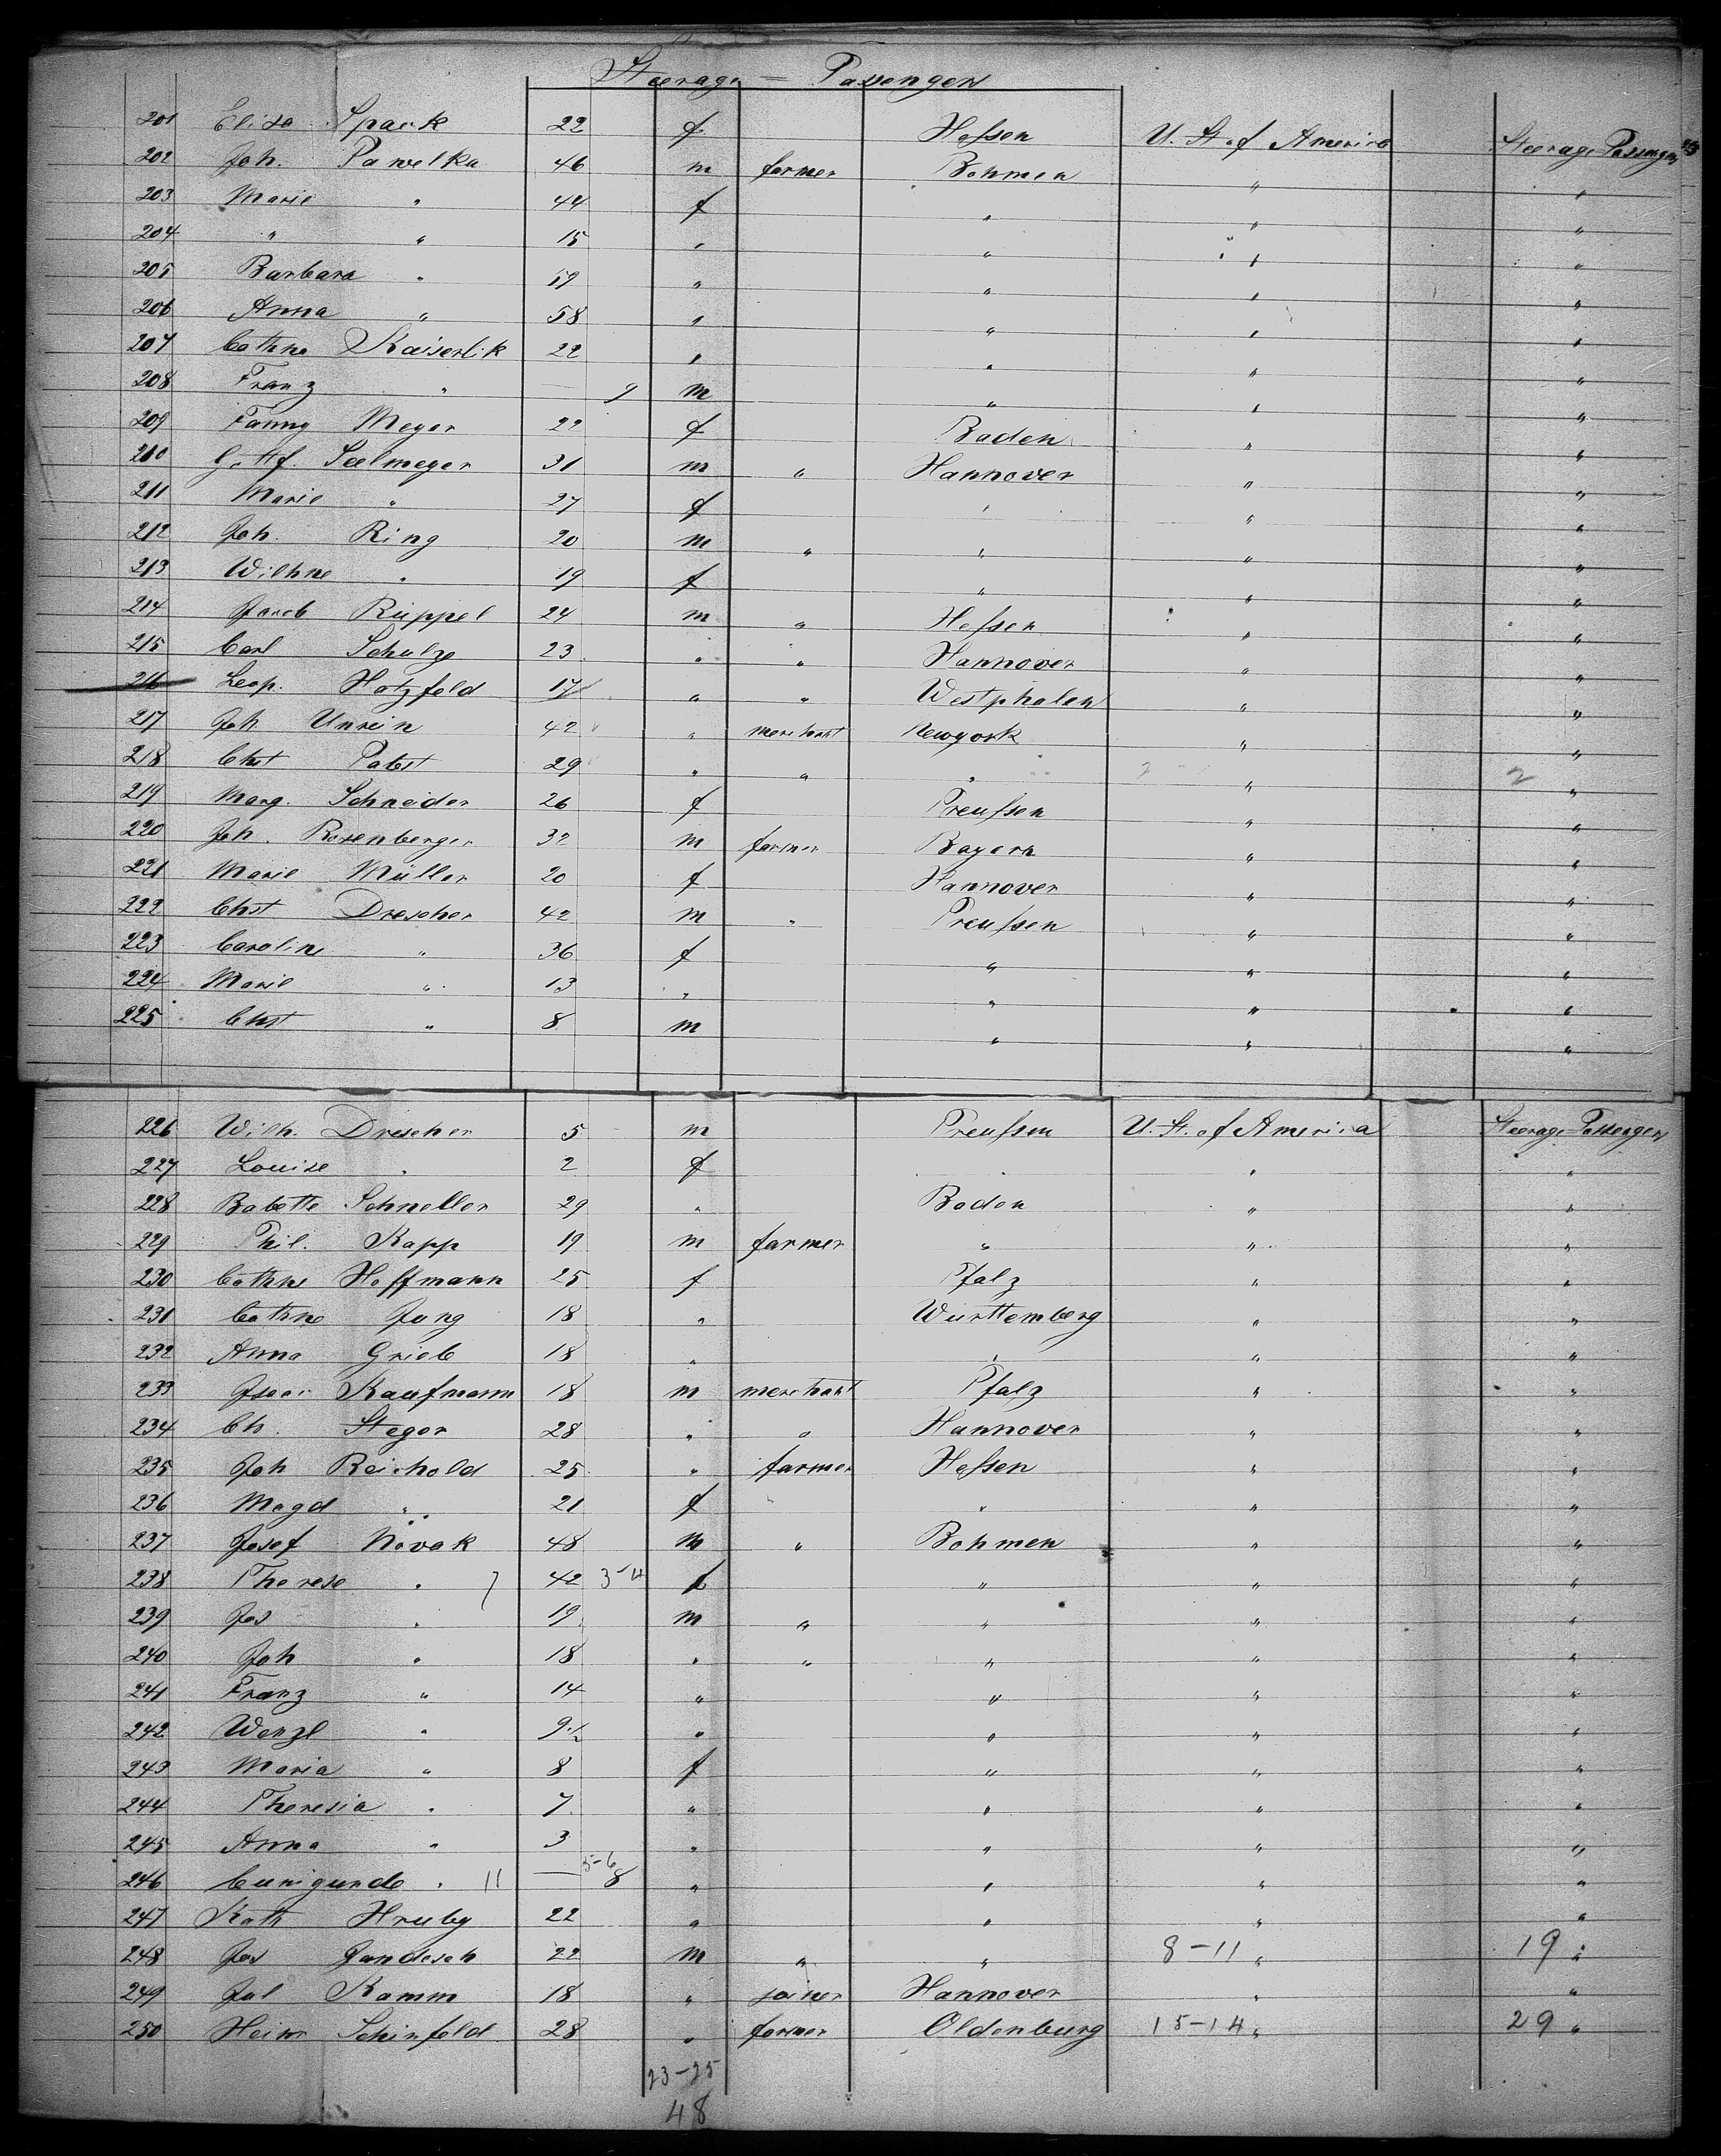 Steerage = Passengers
201 Elisa Spack 22 f Hessen U. St. of America Steerage Passengers
202 Joh. Pawelka 46 m farmer Bohmen " "
203 Marie " 44 f " " "
204 " " 15 " " " "
205 Barbara " 59 " " " "
206 Anna " 58 " " " "
207 Cathne Kaiserlik 22 " " " "
208 Franz " — 9 m " " "
209 Fanny Meyer 22 f Baden " "
210 Gottf. Seelmeyer 31 m " Hannover " "
211 Marie " 27 f " " "
212 Joh. Ring 20 m " " " "
213 Wilhne " 19 f " " "
214 Jacob Rüppel 24 m " Hessen " "
215 Carl Schulze 23 " " Hannover " "
216 Leop. Hatzfeld 17 " " Westphalen " "
217 Joh Unrein 42 " merchant Newyork " "
218 Chst Pabst 29 " " " 2 " 2 "
219 Marg. Schneider 26 f Preussen " "
220 Joh. Rosenberger 32 m farmer Bayern " "
221 Marie Müller 20 f Hannover " "
222 Chst Drescher 42 m " Preussen " "
223 Caroline " 36 f " " "
224 Marie " 13 " " " "
225 Chst " 8 m " " "
226 Wilh. Drescher 5 m Preussen U. St. of America Steerage Passengers
227 Louise " 2 f " " "
228 Babette Schneller 29 " Baden " "
229 Phil. Kapp 19 m farmer " " "
230 Cathne Hoffmann 25 f Pfalz " "
231 Cathne Jung 18 " Wurttemberg " "
232 Anna Grieb 18 " " " "
233 Isaac Kaufmann 18 m merchant Pfalz " "
234 Ch. Steger 28 " " Hannover " "
235 Joh Reichold 25 " farmer Hessen " "
236 Magd " 21 f " " "
237 Josef Novak 48 m " Bohmen " "
238 Therese " 42 3-4 f " " "
239 Jos " 19 m " " " "
240 Joh " 18 " " " " "
241 Franz " 14 " " " "
242 Wenzl " 9½ " " " "
243 Maria " 8 f " " "
244 Theresia " 7 " " " "
245 Anna " 3 " " " "
246 Cunigunde " 11 — 5-6 8 " " " "
247 Kath Hruby 22 " " " "
248 Jos Jandesch 22 m " " 8-11 " 19 "
249 Jul Kamm 18 " joiner Hannover " "
250 Heinr Schinfeld 28 " farmer Oldenburg 15-14 " 29 "
23-25
48